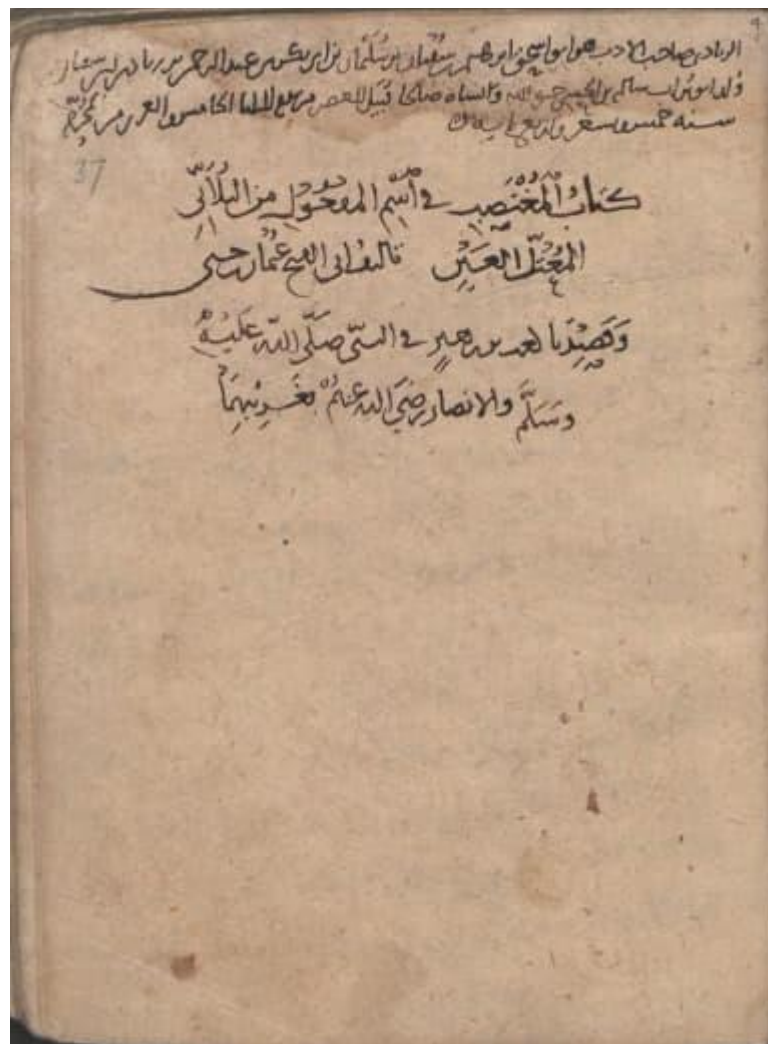 الزيادي صاحب الادب هو ابو اسحق ابرهيم بن سفين بن سليمن بن ابي بكر بن عبد الرحمن بن زياد بن ابي سفين
ولد ابو بن سالم بن الحسين وانشاه صالحا قبيل العصر من يوم الثلثا الخامس والعشرين من المحرم
سنة خمس وسبعين واربع مايه
37
كتاب المغتصب في اسم المفعول من الثلاثي
المعتل العين تاليف ابي الفتح عثمان بن جني
وقصيدتا كعب بن زهير في النبي صلى الله عليه
وسلم والانصار رضي الله عنهم بغريبهما